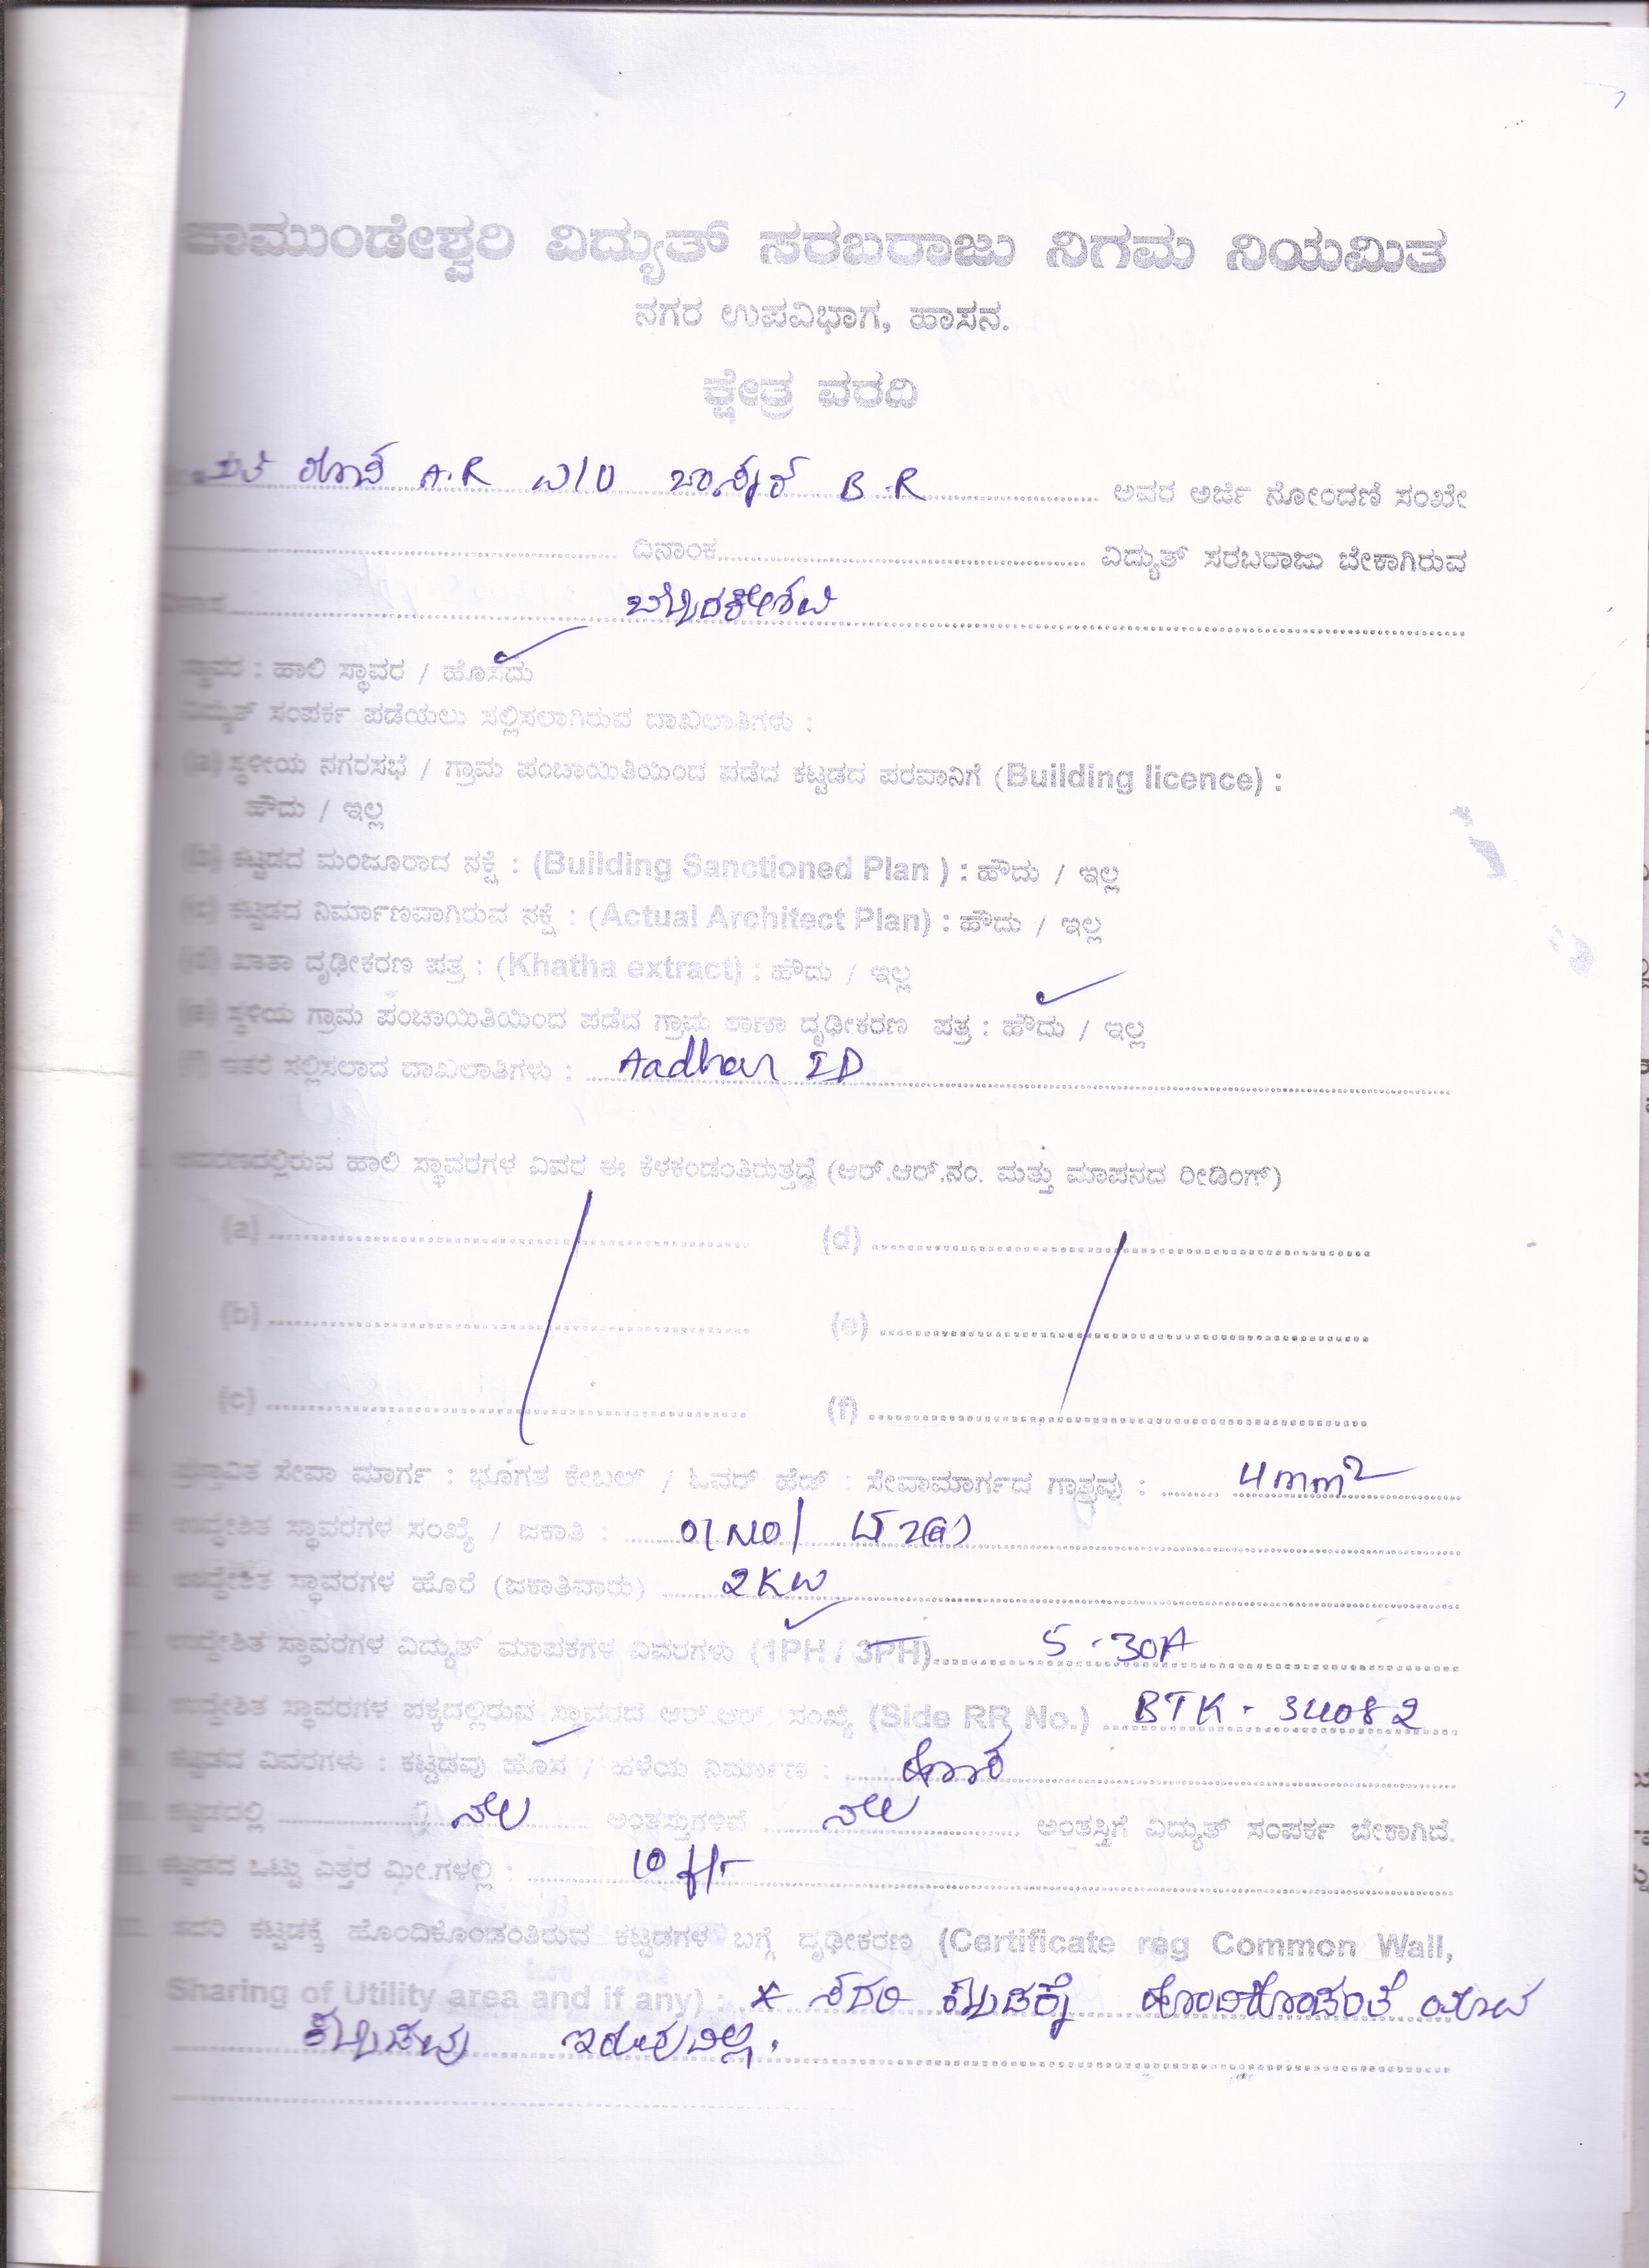 ಚಾಮುಂಡೇಶ್ವರಿ ವಿದ್ಯುತ್ ಸರಬರಾಜು ನಿಗಮ ನಿಯಮಿತ
ನಗರ ಉಪವಿಭಾಗ, ಹಾಸನ.
ಕ್ಷೇತ್ರ ವರದಿ
A.R W/O B.R ಅವರ ಅರ್ಜಿ ನೋಂದಣಿ ಸಂಖ್ಯೇ
ದಿನಾಂಕ ವಿದ್ಯುತ್ ಸರಬರಾಜು ಬೇಕಾಗಿರುವ
ಸ್ಥಾವರ : ಹಾಲಿ ಸ್ಥಾವರ / ಹೊಸದು
ವಿದ್ಯುತ್ ಸಂಪರ್ಕ ಪಡೆಯಲು ಸಲ್ಲಿಸಲಾಗಿರುವ ದಾಖಲಾತಿಗಳು :
(a) ಸ್ಥಳೀಯ ನಗರಸಭೆ / ಗ್ರಾಮ ಪಂಚಾಯಿತಿಯಿಂದ ಪಡೆದ ಕಟ್ಟಡದ ಪರವಾನಿಗೆ (Building licence) :
ಹೌದು / ಇಲ್ಲ
(b) ಕಟ್ಟಡದ ಮಂಜೂರಾದ ನಕ್ಷೆ : (Building Sanctioned Plan ) : ಹೌದು / ಇಲ್ಲ
(c) ಕಟ್ಟಡದ ನಿರ್ಮಾಣವಾಗಿರುವ ನಕ್ಷೆ : (Actual Architect Plan) : ಹೌದು / ಇಲ್ಲ
(d) ಖಾತಾ ದೃಢೀಕರಣ ಪತ್ರ : (Khatha extract) : ಹೌದು / ಇಲ್ಲ
(e) ಸ್ಥಳಿಯ ಗ್ರಾಮ ಪಂಚಾಯಿತಿಯಿಂದ ಪಡೆದ ಗ್ರಾಮ ಠಾಣಾ ದೃಢೀಕರಣ ಪತ್ರ : ಹೌದು / ಇಲ್ಲ
(f) ಇತರೆ ಸಲ್ಲಿಸಲಾದ ದಾಖಲಾತಿಗಳು : Aadhar ID
ಆವರಣದಲ್ಲಿರುವ ಹಾಲಿ ಸ್ಥಾವರಗಳ ವಿವರ ಈ ಕೆಳಕಂಡಂತಿರುತ್ತದೆ (ಆರ್.ಆರ್.ನಂ. ಮತ್ತು ಮಾಪನದ ರೀಡಿಂಗ್)
(a) (d)
(b) (e)
(c) (f)
ಪ್ರಸ್ತಾವಿತ ಸೇವಾ ಮಾರ್ಗ : ಭೂಗತ ಕೇಬಲ್ / ಓವರ್ ಹೆಡ್ : ಸೇವಾಮಾರ್ಗದ ಗಾತ್ರವು : 4mm2
ಉದ್ದೇಶಿತ ಸ್ಥಾವರಗಳ ಸಂಖ್ಯೆ / ಜಕಾತಿ : 01 NO/ LT 2(a)
ಉದ್ದೇಶಿತ ಸ್ಥಾವರಗಳ ಹೊರೆ (ಜಕಾತಿವಾರು) 2KW
ಉದ್ದೇಶಿತ ಸ್ಥಾವರಗಳ ವಿದ್ಯುತ್ ಮಾಪಕಗಳ ವಿವರಗಳು (1PH / 3PH) 5-30A
ಉದ್ದೇಶಿತ ಸ್ಥಾವರಗಳ ಪಕ್ಕದಲ್ಲಿರುವ ಸ್ಥಾವರದ ಆರ್.ಆರ್. ಸಂಖ್ಯೆ (Side RR No.) BTK - 34082
ಕಟ್ಟಡದ ವಿವರಗಳು : ಕಟ್ಟಡವು ಹೊಸ / ಹಳೆಯ ನಿರ್ಮಾಣ : ಹೊಸ
ಕಟ್ಟಡದಲ್ಲಿ ನೆಲ ಅಂತಸ್ತುಗಳಿವೆ ನೆಲ ಅಂತಸ್ತಿಗೆ ವಿದ್ಯುತ್ ಸಂಪರ್ಕ ಬೇಕಾಗಿದೆ.
ಕಟ್ಟಡದ ಒಟ್ಟು ಎತ್ತರ ಮೀ.ಗಳಲ್ಲಿ : 10 ft
ಸದರಿ ಕಟ್ಟಡಕ್ಕೆ ಹೊಂದಿಕೊಂಡಂತಿರುವ ಕಟ್ಟಡಗಳ ಬಗ್ಗೆ ದೃಢೀಕರಣ (Certificate reg Common Wall,
Sharing of Utility area and if any) : * ಸದರಿ ಕಟ್ಟಡಕ್ಕೆ ಹೊಂದಿಕೊಂಡಂತೆ ಯಾವ
ಕಟ್ಟಡವು ಇರುವುದಿಲ್ಲ.